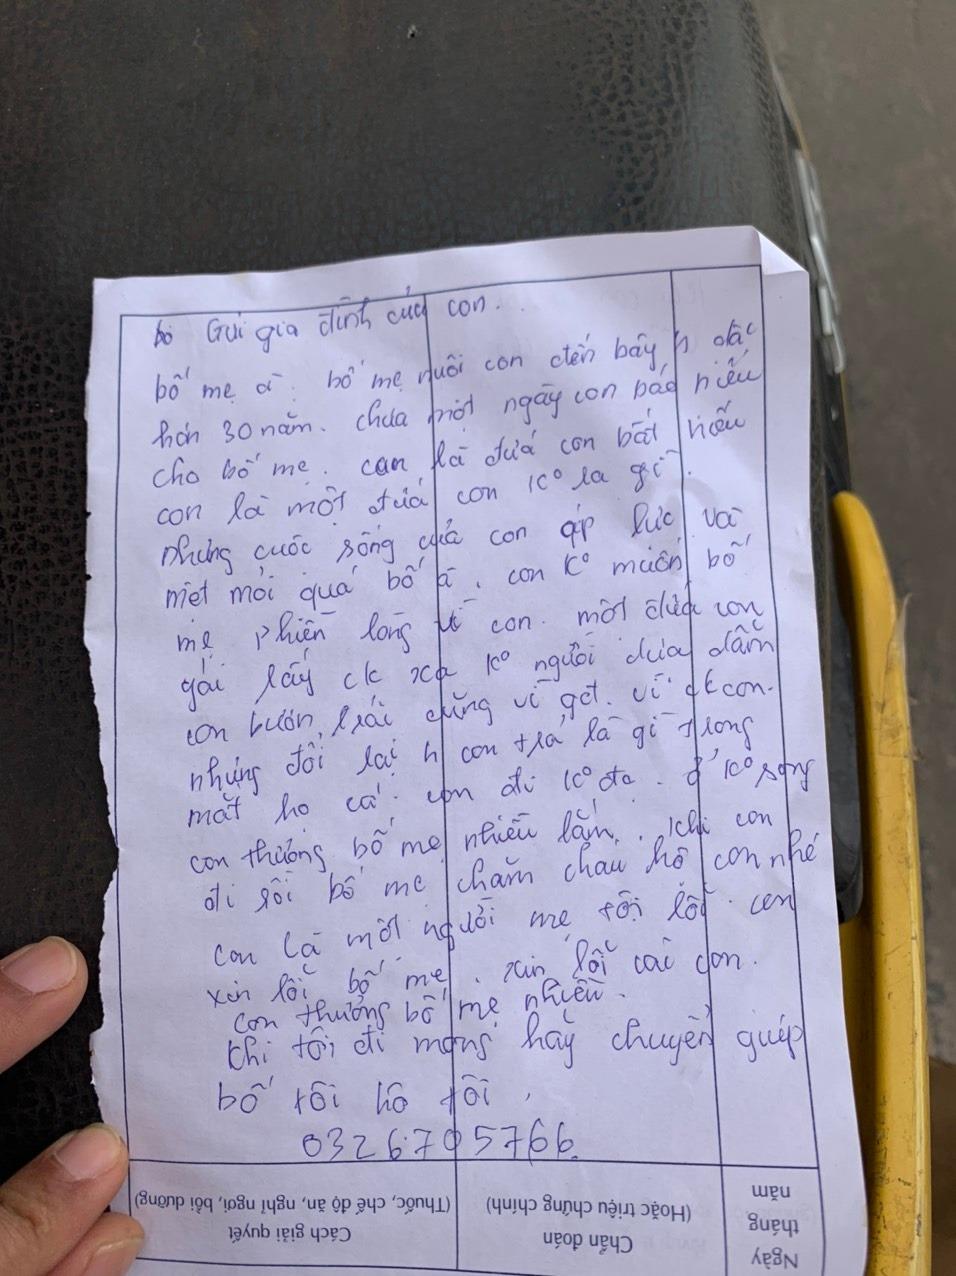 bỏ Gửi gia đình của con.
bố mẹ à. bố mẹ nuôi con đến bây h đắc
hơn 30 năm. chưa một ngày con báo hiếu
cho bố mẹ. con là đứa con bất hiếu
con là một đứa con K° ra gì.
nhưng cuộc sống của con áp lực và
mệt mỏi quá bố à. con K° muốn bố
mẹ phiền lòng vì con. một đứa con
gái lấy ck xa K° người đưa đẩm
con buôn, trái cũng vì get. vì ck con.
nhưng đổi lại h con trả là gì trong
mắt họ cả. con đi K° đc. ở K° song
con thương bố mẹ nhiều lắm. Khi con
đi rồi bố mẹ chăm cháu hộ con nhé
con là một người mẹ tồi lỗi. con
xin lỗi bố mẹ. xin lỗi các con.
con thương bố mẹ nhiều.
Khi tôi đi mong hãy chuyển giúp
bố tôi hộ tôi,
0326705766.
Ngày tháng năm
Chẩn đoán
(Hoặc triệu chứng chính)
Cách giải quyết
(Thuốc, chế độ ăn, nghỉ ngơi, bồi dưỡng)